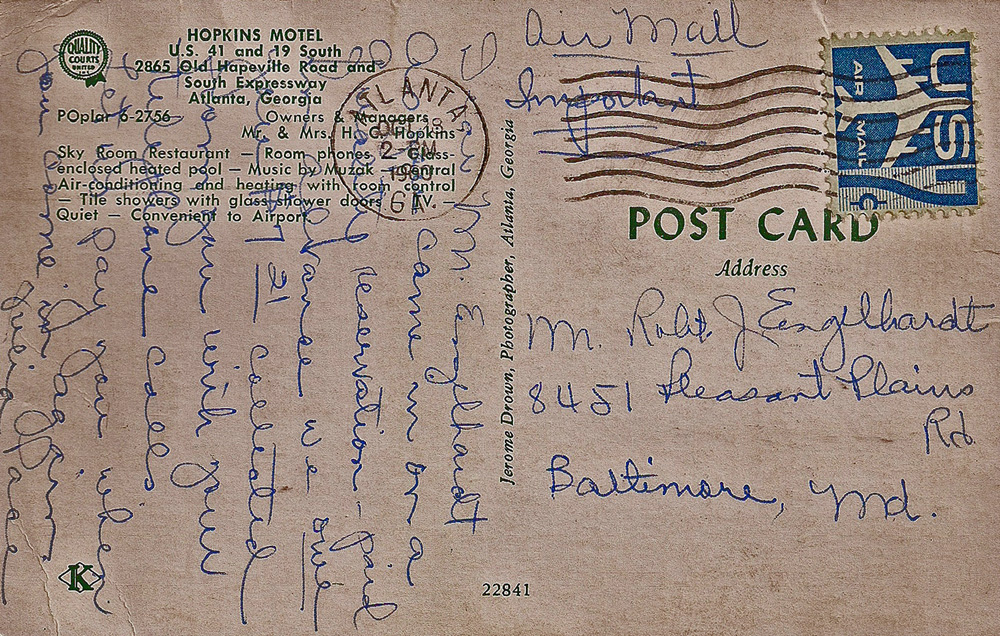 HOPKINS MOTEL
U.S. 41 and 19 South
2865 Old Hapeville Road and
South Expressway
Atlanta, Georgia
POplar 6-2756— Owners & Managers
Mr. & Mrs. H. C. Hopkins
Sky Room Restaurant — Room phones — Glass-
enclosed heated pool — Music by Muzak — Central
Air-conditioning and heating with room control
— Tile showers with glass shower doors — TV. —
Quiet — Convenient to Airport
QUALITY
COURTS
UNITED
ATLANTA
2 - PM
1960
GA
Dear Mr. Engelhardt
Came in on a
reservation - paid
in advance we owe
21 collected
from you with your
telephone calls
pay you when
you come in again
Please
K
Jerome Drown, Photographer, Atlanta, Georgia
22841
Air Mail
Important
US
AIR MAIL
POST CARD
Address
Mr. Robt. J Engelhardt
8451 Pleasant Plains
Rd.
Baltimore, Md.